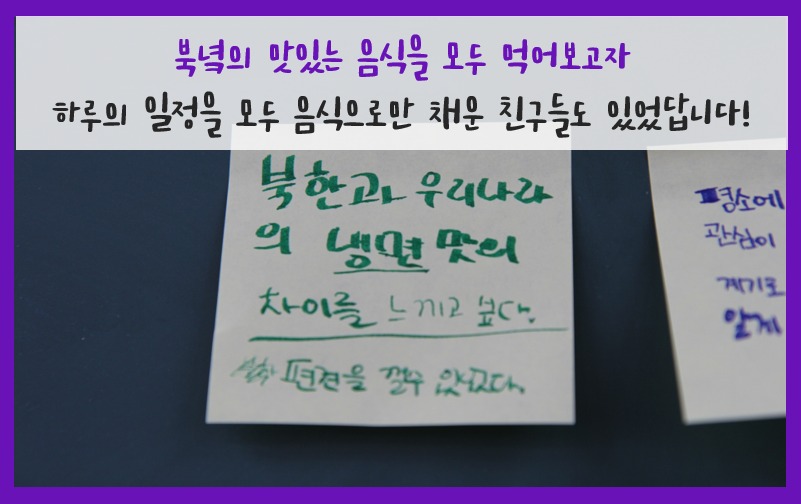 북녘의 맛있는 음식을 모두 먹어보고자
하루의 일정을 모두 음식으로만 채운 친구들도 있었답니다!
북한과 우리나라
의 냉면 맛의
차이를 느끼고 싶다.
편견을 깰수 있었다.
평소에
관심이
계기로
알게